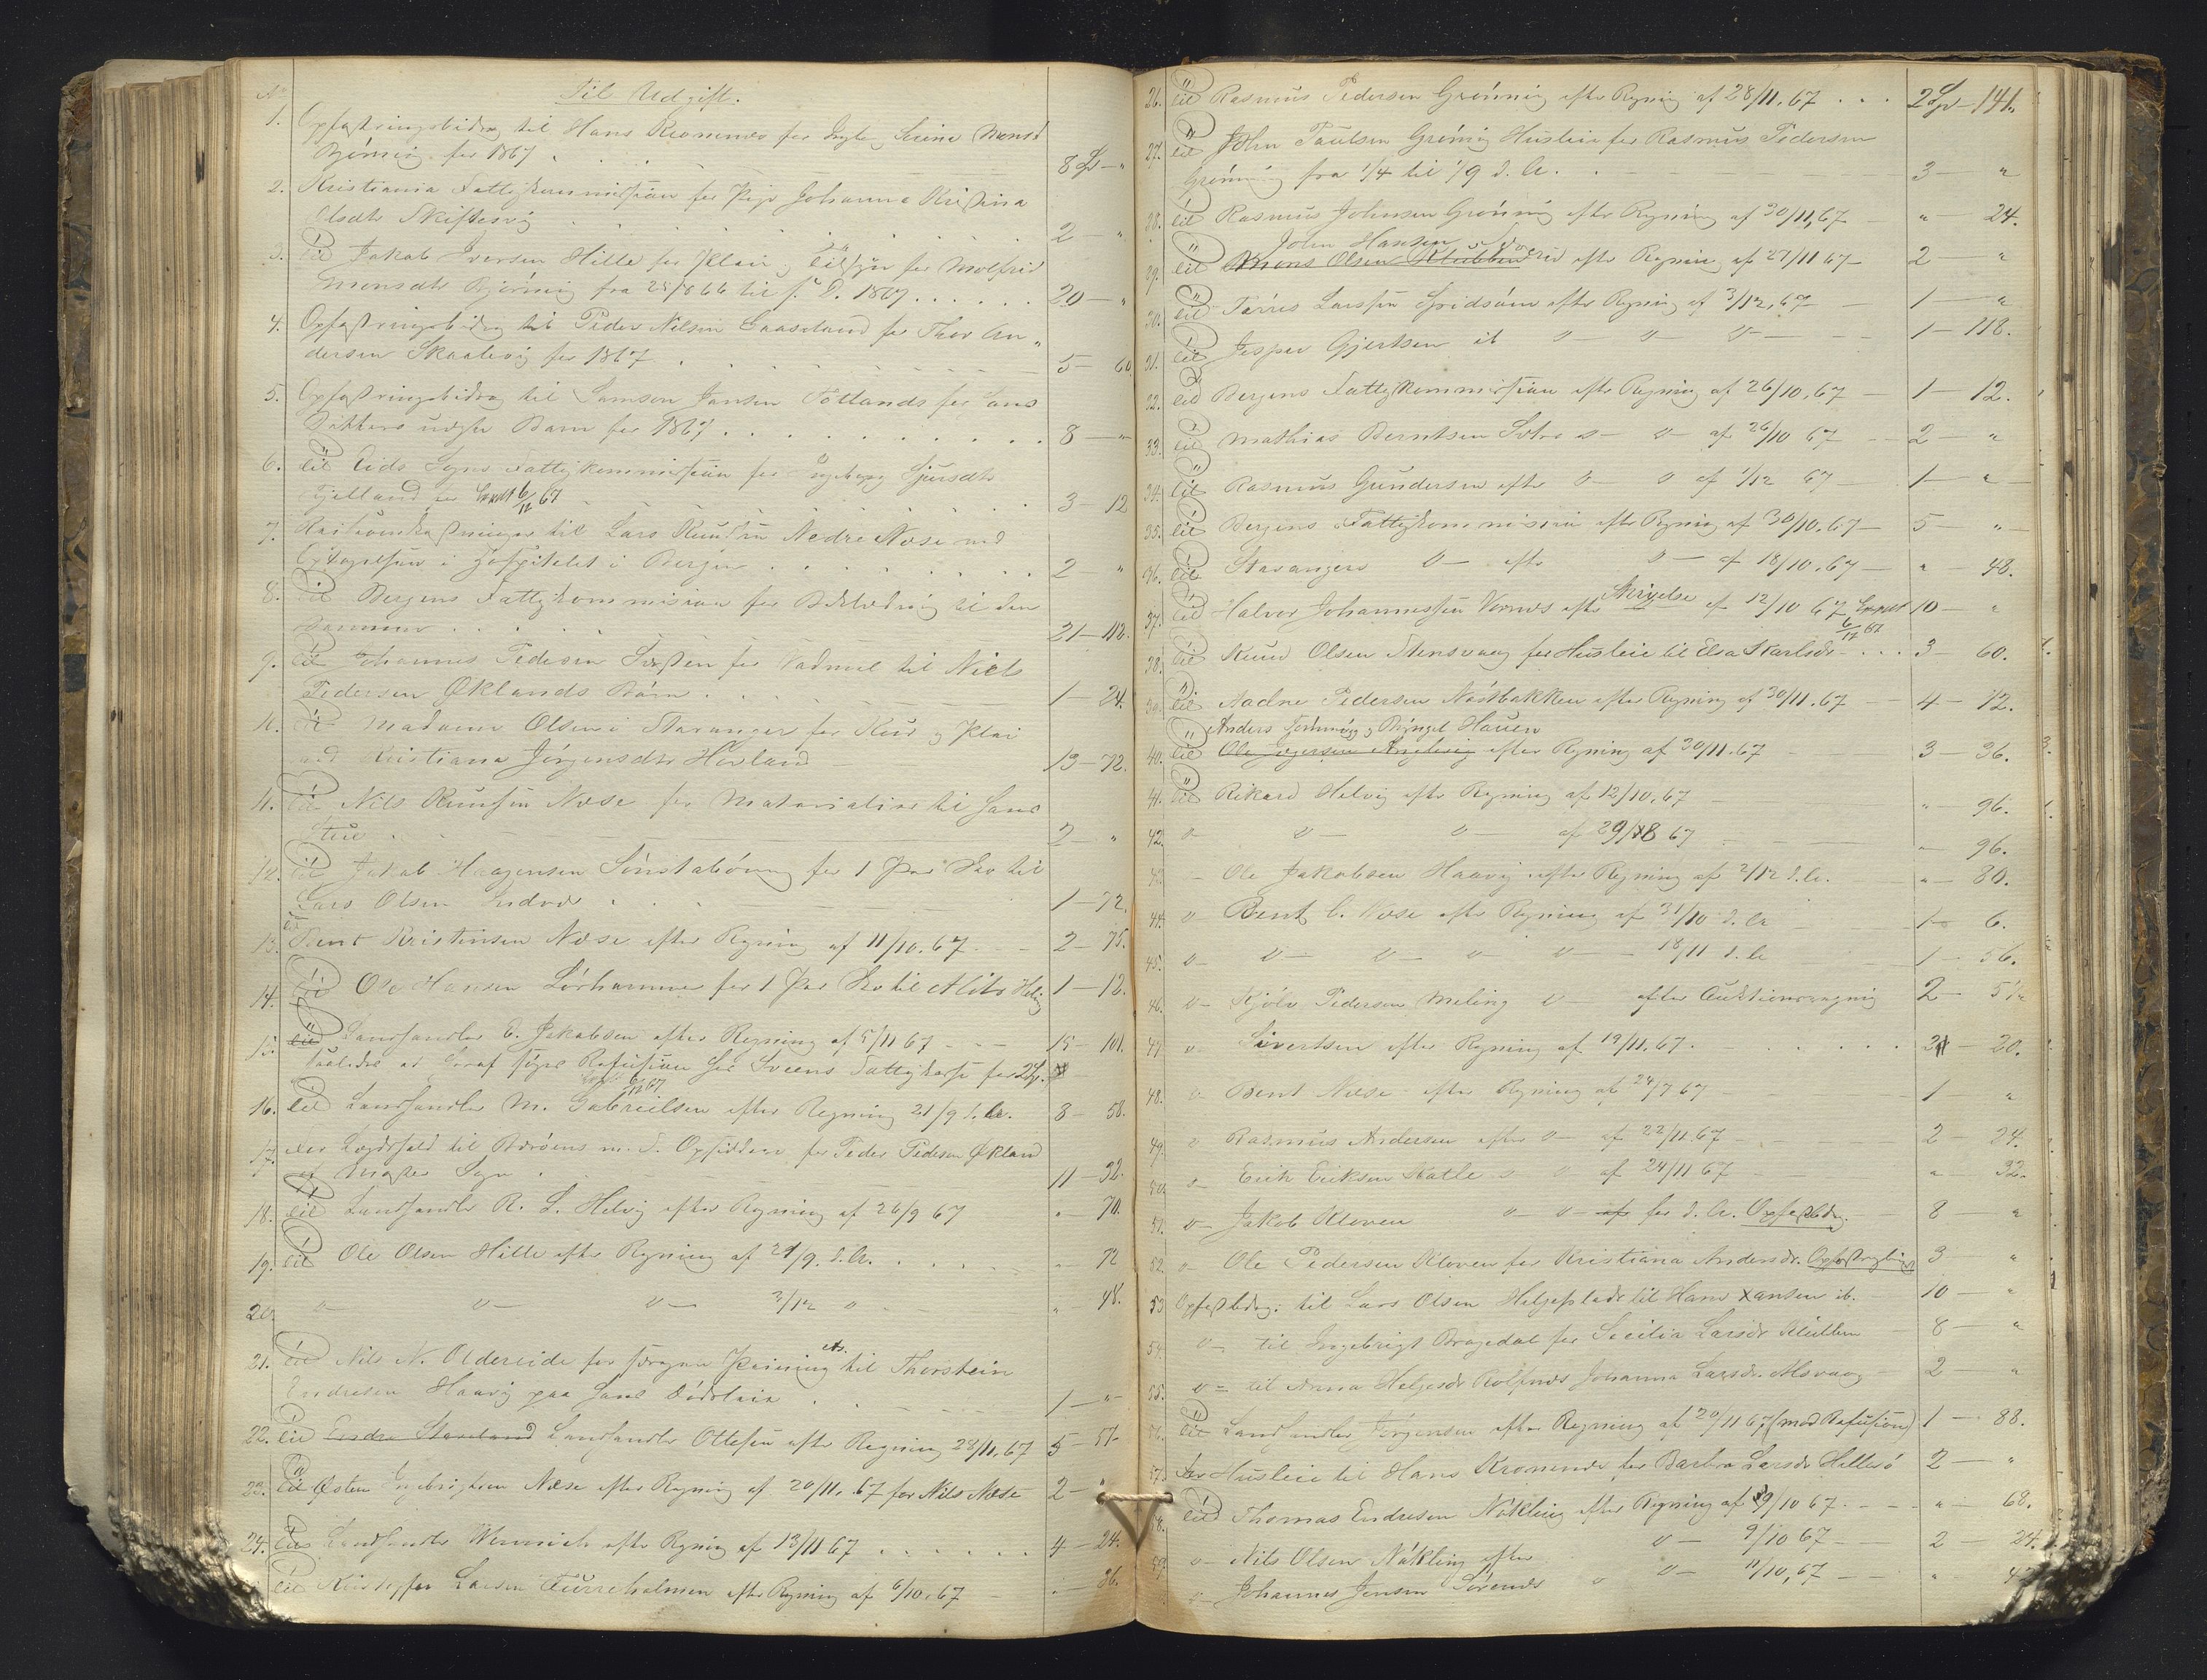 No
Til Udgift.
1. Opfostringsbidrag til Hans Kronenes for Serine Monsd
Bjørnevig for 1867 8 Sp - "
2. Kristiania Fattigkommission for Pige Johanna Kristina
Olsdtr Skiftesvig 2 - "
3. Til Jakob Iversen Hille for Pleie og Tilsyn for Molfrid
Monsdtr Bjørnevig fra 25/8 66 til 1867 20 - "
4. Opfostringsbidrag til Peder Nilsen Gaaseland for Thor An-
dersen Skaalevig for 1867 5 - 60.
5. Opfostringsbidrag til Samson Jansen Totlands for Hans
Datters uægte Barn for 1867 8 - "
6. til Eids Sogns Fattigkommission for Ingeborg Sjursdtr
Gjelland Exp 6/12 67 3 - 12
7. til Lars Knutsen Nedre Næse ved
Optagelsen i Hospitalet i Bergen 2 - "
8. Til Bergens Fattigkommission for Beklædning til den
21 - 112.
9. til Johannes Pedersen for Vadmel til Niels
Pedersen Øklands Børn 1 - 24.
10. til Madame Olsen i Stavanger for Kur og Pleie
ved Kristiana Jørgensdtr Hovland 13 - 72.
11. til Nils Knutsen Næse for Materialier til Hans
Stue 2 "
12. til Jakob Haagensen Sønstabøvaag for 1 Par Sko til
Lars Olsen 1 - 72.
13. til Bent Kristensen Næse efter Regning af 11/10. 67 2 - 75.
14. til Ole Hansen Sørhammer for 1 Par Sko til Nils Helvig 1 - 12.
15. til Landhandler C. Jakobsen efter Regning af 5/11 67 15 - 101.
saaledes at heraf søges Refusion hos Sveens Fattigkasse for 2 Sp.
Exp. 6/12 67
16. til Landhandler M. Gabrielsen efter Regning 21/9 d. A. 8 - 58.
17. for Lægdshold til Børøens m. fl. Opsiddere for Peder Pedersen Økland
af Moster Sogn 11 - 32.
18. til Landhandler R. L. Helvig efter Regning af 26/9 67 " - 70.
19. til Ole Olsen Hille efter Regning af 21/9. d. A. " - 72
20. " - " - " - 3/12 " " - 48.
21. til Nils N. Oldereide for til Thorstein
Endresen Haavig paa Hans Dødsleie 1 - "
22. til Endre Stavland Landhandler Ottesen efter Regning 28/11. 67 5 - 57.
23. til Østen Ingebrigtsen Næse efter Regning af 20/11. 67 for Nils Næse 2 - "
24. til Landhandler Wennick efter Regning af 13/11 67 4 - 24.
til Kristoffer Larsen Furreholmen efter Regning af 6/10. 67 " 36.
26. til Rasmus Pedersen Grønnevig efter Regning af 28/11. 67 2 Sp - 141.
27. til John Paulsen Grønvig Husleie for Rasmus Pedersen
Grønnevig fra 1/4 til 1/9 d. A. 3 - "
28. til Rasmus Johnsen Grønnevig efter Regning af 30/11. 67 " - 24.
John Hansen
29. til Mons Olsen Klubben efter Regning af 27/11 67 2 - "
30. til Tørris Larssen Spidsøen efter Regning af 3/12. 67 1 - "
31. til Jesper Gjertsen ib " " " 1 - 118.
32. til Bergens Fattigkommission efter Regning af 26/10. 67 1 - 12.
33. til Mathias Berntsen " - " - af 26/10 67 2 - "
34. til Rasmus Gundersen efter " - " af 1/12 67 1 - "
35. til Bergens Fattigkommission efter Regning af 30/10. 67 5 - "
36. til Stavangers " - efter " - af 18/10. 67 " - 48.
37. til Halvor Johannessen Vernæs efter Skrivelse af 12/10 67 Exp 6/12 67 10 - "
38. til Knud Olsen Stensvaag for Husleie til Elsa Karlsdr 3 - 60.
39. til Aadne Pedersen Nøstbakken efter Regning af 30/11. 67 4 - 12.
Anders og Brynjel Hauen
40. til Ole efter Regning af 30/11. 67 3 - 36.
41. til Rikard Helvig efter Regning af 12/10. 67 " - 96.
42. " - " - " - af 29/8 67 " - 96.
43. - Ole Jakobsen Haavig efter Regning af 2/12 d. A. " - 80.
44. " - Bent C. Næse efter Regning af 31/10 d. A. 1 - 6.
45. " - " - " - " - " - 18/11 d. A. 1 - 56.
46. " - Kjøln Pedersen Meling " - efter Auktionsregning 2 - 51.
47. " - Sivertsen efter Regning af 19/11. 67. 21 - 20.
48. " - Bent Næse efter Regning af 24/7 67 1 - "
49. " Rasmus Andersen efter " - af 22/11. 67 2 - 24.
50. " - Erik Eriksen Katle " - " - af 24/11 67 " - 32.
51. " - Jakob Kloven " - " - af for d. A. Opfostbdg. 8 - "
52. " - Ole Pedersen Kloven for Kristiana Andersdr. Opfostringsb. 3 - "
53. Opfostbdrg. til Lars Olsen Helgeplads til Hans Hansen ib. 10 - "
54. " - til Ingebrigt Dragedal for Secilia Larsdr Klubben 8 - "
55. " - til Anna Helgesdr Rolfsnæs Johanna Larsdr. Alsvaag 2 - "
56. til Landhandler Jørgensen efter Regning af 20/11 67 (mod Refusion) 1 - 88.
57. for Husleie til Hans Kronenes for Barbra Larsdr Hillesø 2 - "
58. til Thomas Endresen Nøkling efter Regning af 9/10 67. " - 68.
59. " - Nils Olsen Nøkling efter " - 9/10 67 2 - 24.
" - Johannes Jensen Sørenes " " - 11/10. 67 "